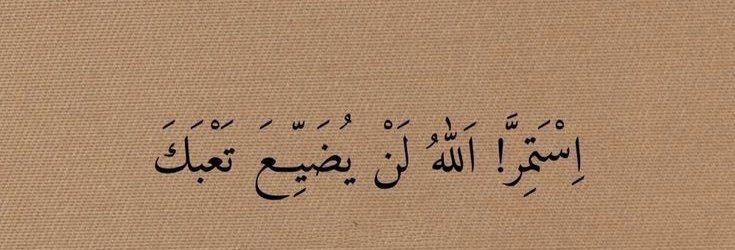 اِسْتَمِرَّ! اَللّٰهُ لَنْ يُضَيِّـعَ تَعْبَكَ